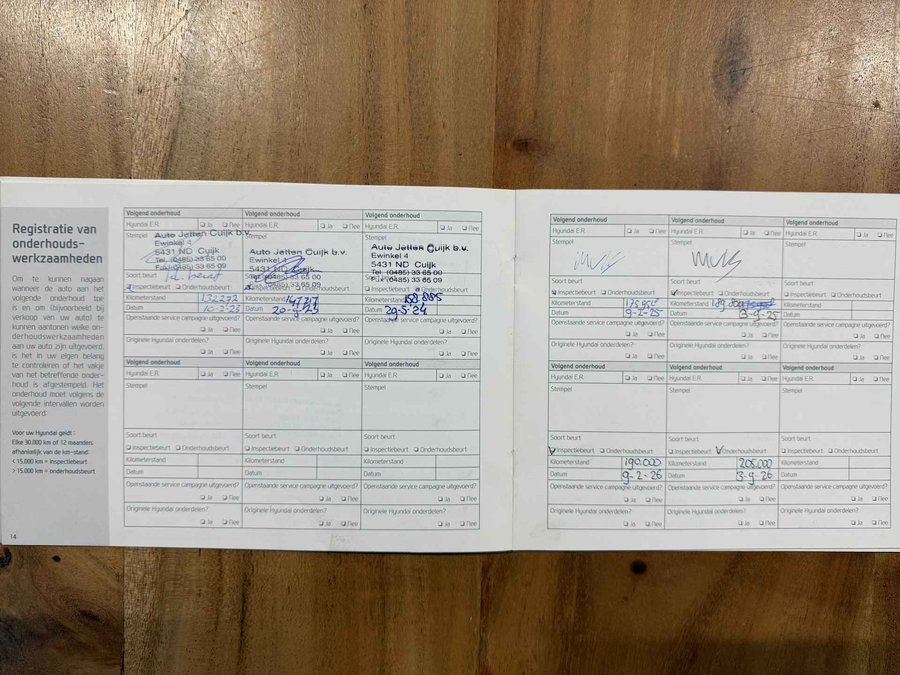 Registratie van
onderhouds-
werkzaamheden
Om te kunnen nagaan
wanneer de auto aan het
volgende onderhoud toe
is en om (bijvoorbeeld bij
verkoop van uw auto) te
kunnen aantonen welke on-
derhoudswerkzaamheden
aan uw auto zijn uitgevoerd,
is het in uw eigen belang
te controleren of het vakje
van het betreffende onder-
houd is afgestempeld. Het
onderhoud moet volgens de
volgende intervallen worden
uitgevoerd:
Voor uw Hyundai geldt:
Elke 30.000 km of 12 maanden,
afhankelijk van de km-stand:
< 15.000 km = inspectiebeurt
> 15.000 km = onderhoudsbeurt
14
Volgend onderhoud
Hyundai E.R. Ja Nee
Stempel
Auto Jetten Cuijk b.v.
Ewinkel 4
5431 ND Cuijk
Tel. (0485) 33 65 00
Fax (0485) 33 65 09
Soort beurt
Inspectiebeurt Onderhoudsbeurt
Kilometerstand 132272
Datum
Openstaande service campagne uitgevoerd?
Ja Nee
Originele Hyundai onderdelen?
Ja Nee
Volgend onderhoud
Hyundai E.R. Ja Nee
Stempel
Auto Jetten Cuijk b.v.
Ewinkel 4
5431 ND Cuijk
Tel. (0485) 33 65 00
(0485) 33 65 09
Inspectiebeurt Onderhoudsbeurt
Kilometerstand
Datum
Openstaande service campagne uitgevoerd?
Ja Nee
Originele Hyundai onderdelen?
Ja Nee
Volgend onderhoud
Hyundai E.R. Ja Nee
Stempel
Auto Jetten Cuijk b.v.
Ewinkel 4
5431 ND Cuijk
Tel. (0485) 33 65 00
(0485) 33 65 09
Inspectiebeurt Onderhoudsbeurt
Kilometerstand
Datum 29-5-24
Openstaande service campagne uitgevoerd?
Ja Nee
Originele Hyundai onderdelen?
Ja Nee
Volgend onderhoud
Hyundai E.R. Ja Nee
Stempel
Soort beurt
Inspectiebeurt Onderhoudsbeurt
Kilometerstand
Datum
Openstaande service campagne uitgevoerd?
Ja Nee
Originele Hyundai onderdelen?
Ja Nee
Volgend onderhoud
Hyundai E.R. Ja Nee
Stempel
Soort beurt
Inspectiebeurt Onderhoudsbeurt
Kilometerstand
Datum
Openstaande service campagne uitgevoerd?
Ja Nee
Originele Hyundai onderdelen?
Ja Nee
Volgend onderhoud
Hyundai E.R. Ja Nee
Stempel
Soort beurt
Inspectiebeurt Onderhoudsbeurt
Kilometerstand
Datum
Openstaande service campagne uitgevoerd?
Ja Nee
Originele Hyundai onderdelen?
Ja Nee
Volgend onderhoud
Hyundai E.R. Ja Nee
Stempel
Soort beurt
Inspectiebeurt Onderhoudsbeurt
Kilometerstand
Datum 9-2-25
Openstaande service campagne uitgevoerd?
Ja Nee
Originele Hyundai onderdelen?
Ja Nee
Volgend onderhoud
Hyundai E.R. Ja Nee
Stempel
Soort beurt
Inspectiebeurt Onderhoudsbeurt
Kilometerstand 189.000
Datum 3-9-25
Openstaande service campagne uitgevoerd?
Ja Nee
Originele Hyundai onderdelen?
Ja Nee
Volgend onderhoud
Hyundai E.R. Ja Nee
Stempel
Soort beurt
Inspectiebeurt Onderhoudsbeurt
Kilometerstand
Datum
Openstaande service campagne uitgevoerd?
Ja Nee
Originele Hyundai onderdelen?
Ja Nee
Volgend onderhoud
Hyundai E.R. Ja Nee
Stempel
Soort beurt
Inspectiebeurt Onderhoudsbeurt
Kilometerstand 190.000
Datum 9-2-26
Openstaande service campagne uitgevoerd?
Ja Nee
Originele Hyundai onderdelen?
Ja Nee
Volgend onderhoud
Hyundai E.R. Ja Nee
Stempel
Soort beurt
Inspectiebeurt Onderhoudsbeurt
Kilometerstand 205.000
Datum 3-9-26
Openstaande service campagne uitgevoerd?
Ja Nee
Originele Hyundai onderdelen?
Ja Nee
Volgend onderhoud
Hyundai E.R. Ja Nee
Stempel
Soort beurt
Inspectiebeurt Onderhoudsbeurt
Kilometerstand
Datum
Openstaande service campagne uitgevoerd?
Ja Nee
Originele Hyundai onderdelen?
Ja Nee